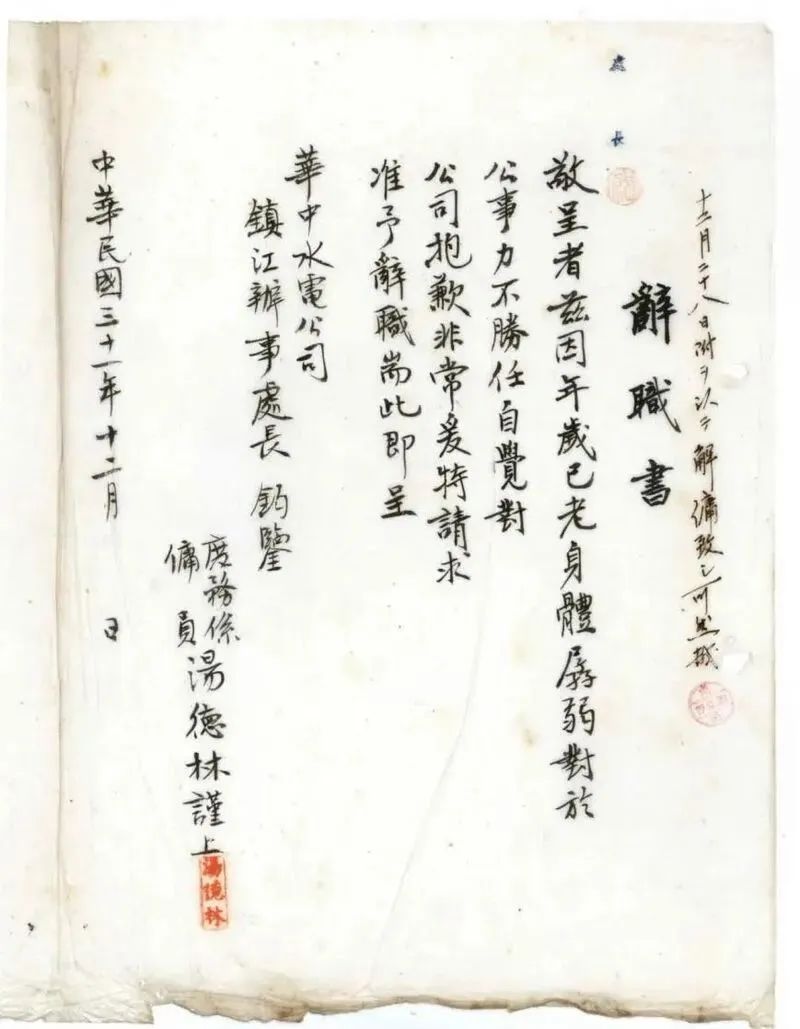 處長
十二月二十八日附ヲ以テ解傭致シ可然哉
辭職書
敬呈者茲因年歲已老身體孱弱對於
公事力不勝任自覺對
公司抱歉非常爰特請求
准予辭職耑此即呈
華中水電公司
鎮江辦事處長 鈞鑒
庶務係
傭員 湯德林謹上
湯德林
中華民國三十一年十二月 日